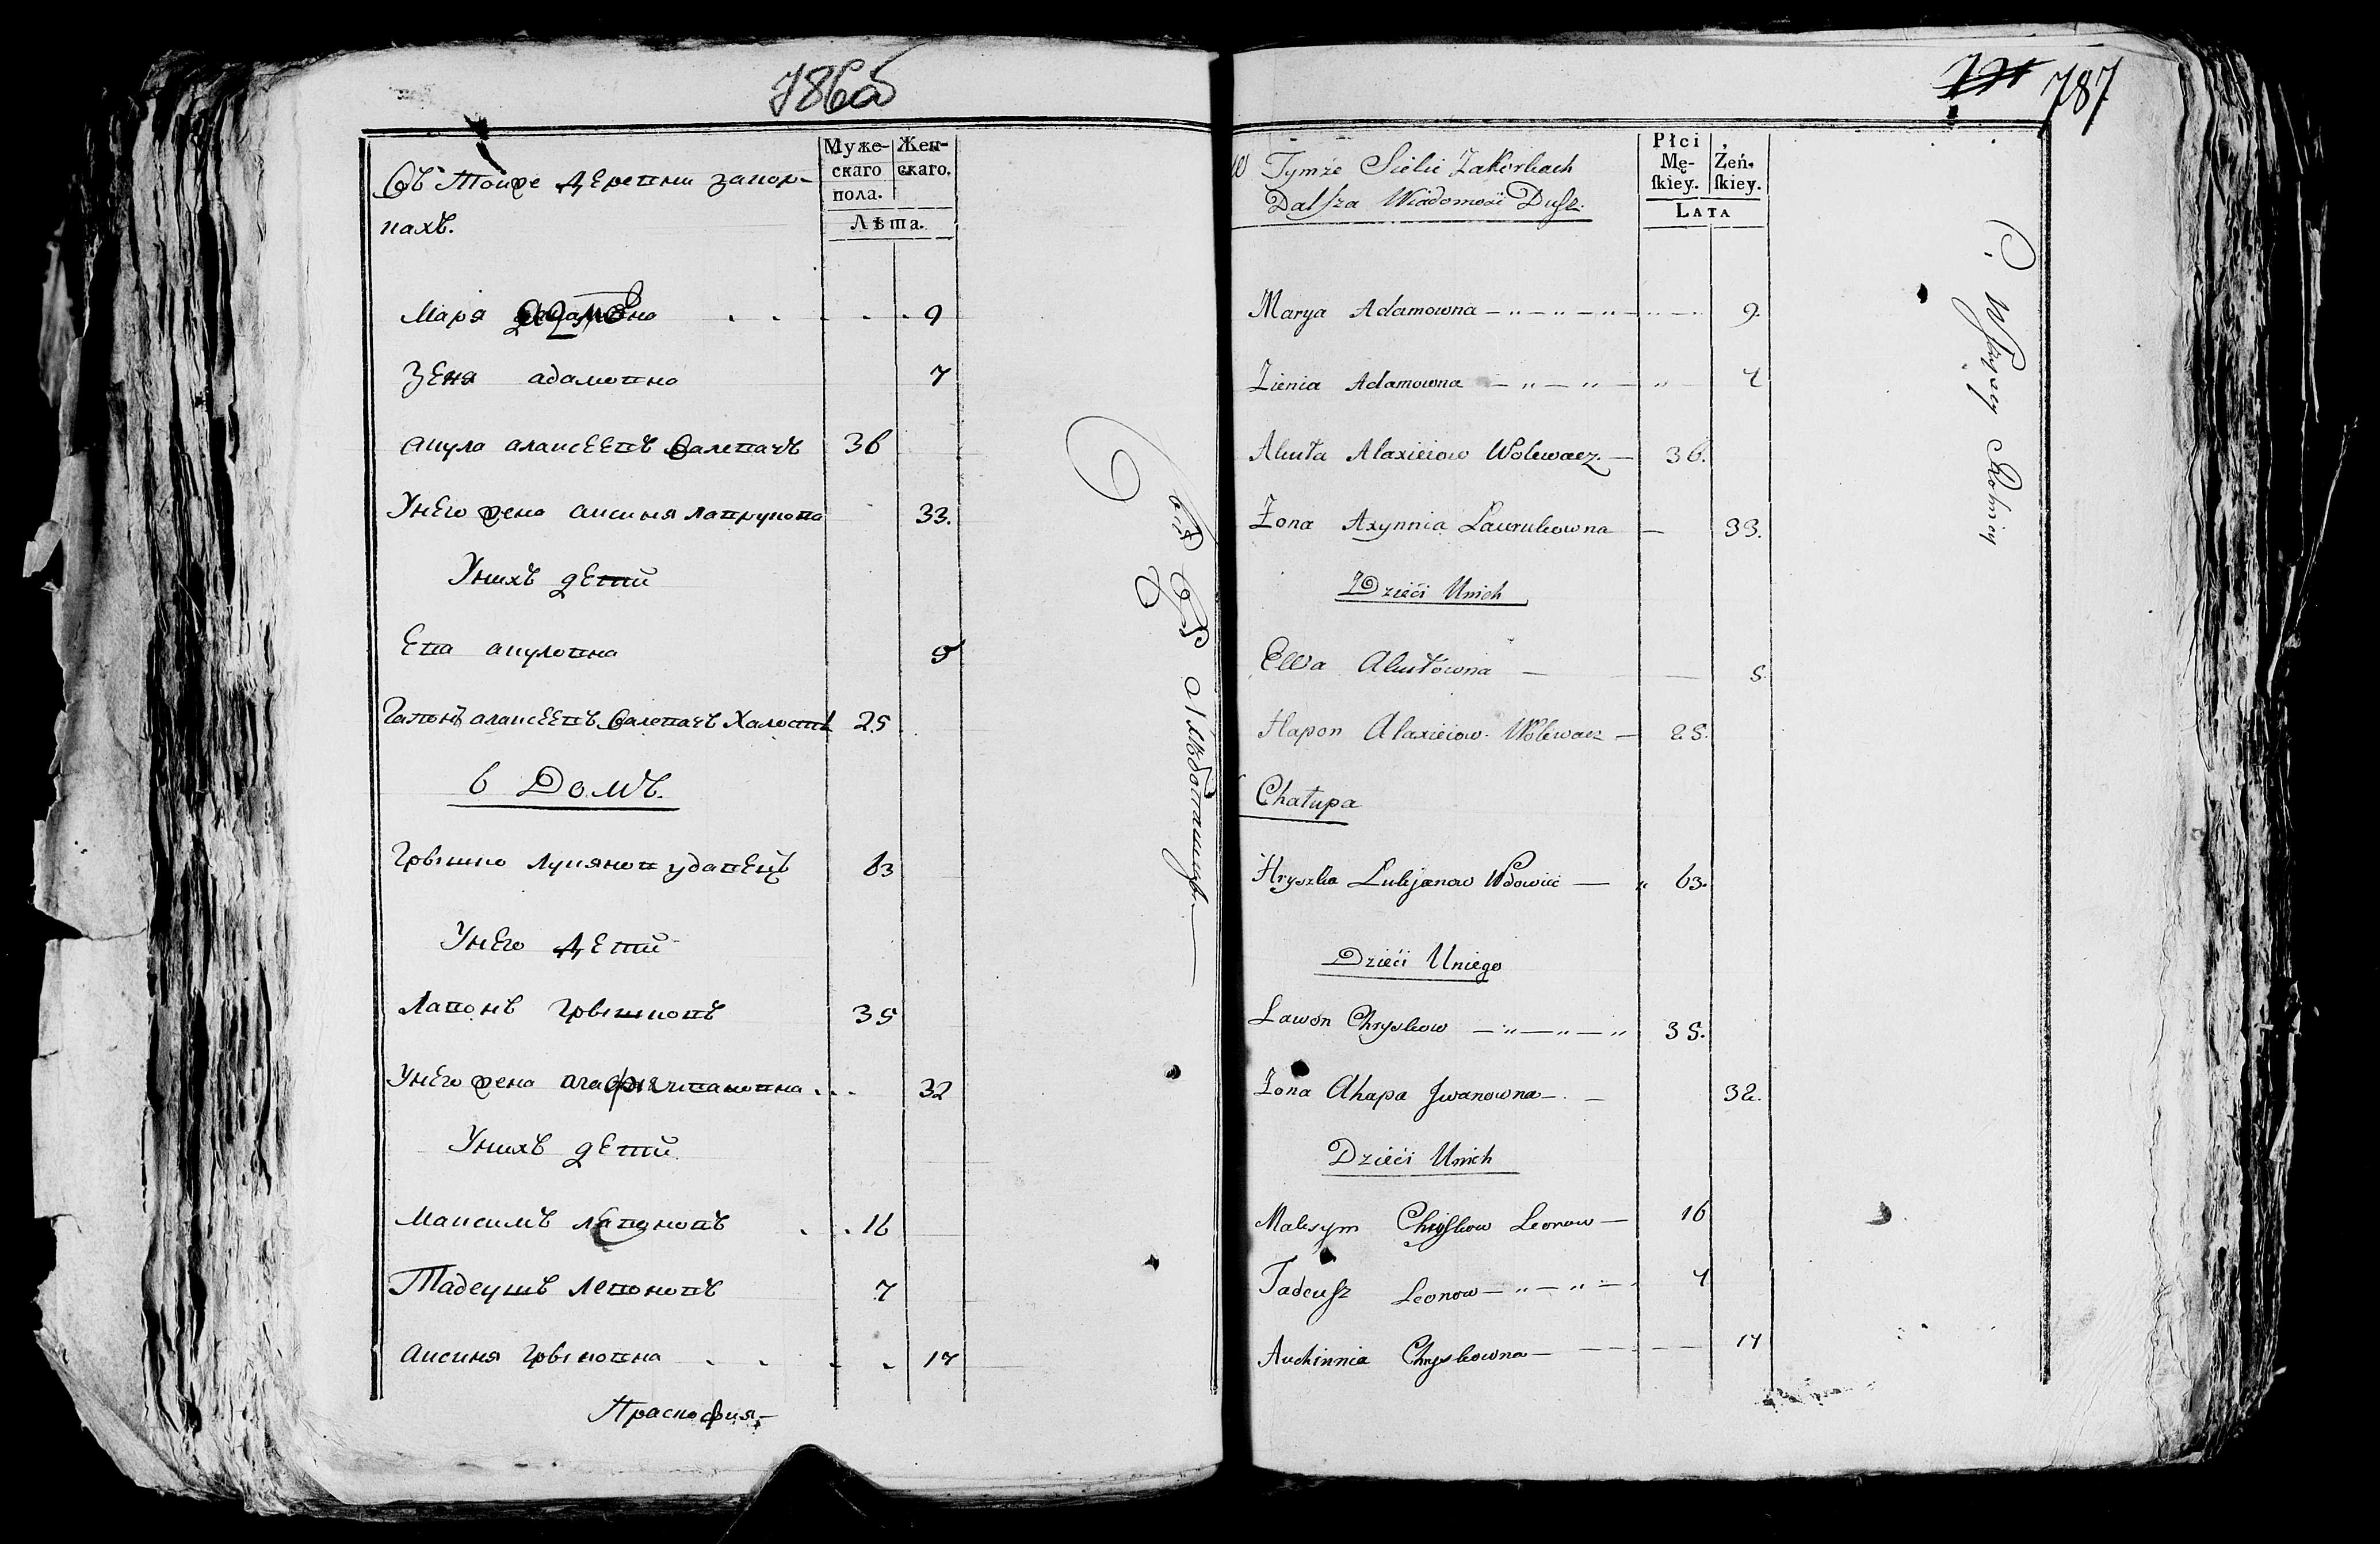 786об
Въ тойже деревни закор-
пахъ.
Муже-
скаго
пола.
Жен-
скаго.
Лѣта.
Маря адамовна . . . . 9
Зеня адамовна 7
Акула алаксеевъ Валевачъ 36
Унего жена аксиня лаврукова 33.
Унихъ дети
Ева акуловна 5
Гапонъ алаксеевъ Валевачъ халостъ 25
6 Домъ.
Грышко лукянов удавецъ 63
Унего дети
Лавонъ Грышковъ 35
Унего жена агафия ивановна . . . 32
Унихъ дети
Максимъ лавоновъ . . 16
Тадеушъ левоновъ 7
Аксиня Грышковна . . . . 17
787
W Tymże Siele Zakorkach
Dalsza Wiadomość Dusz.
Płci
Mę-
skiey.
Żeń-
skiey.
LATA
Marya Adamowna 9.
Zienia Adamowna 7
Akuła Alaxieiow Wolewacz 36.
Żona Axynnia Lawrukowna 33.
Dzieći Unich
Ewa Akułówna 5.
Hapon Alaxieiow Wolewacz 25.
Chałupa
Hryszko Lukjanow Wdowiec 63.
Dzieći Uniego
Lawon Chryskow 35.
Żona Ahapa Jwanowna 32.
Dzieći Unich
Maksym Chryskow Leonow 16
Tadeusz Leonow 7
Auchinnia Chryskowna 17